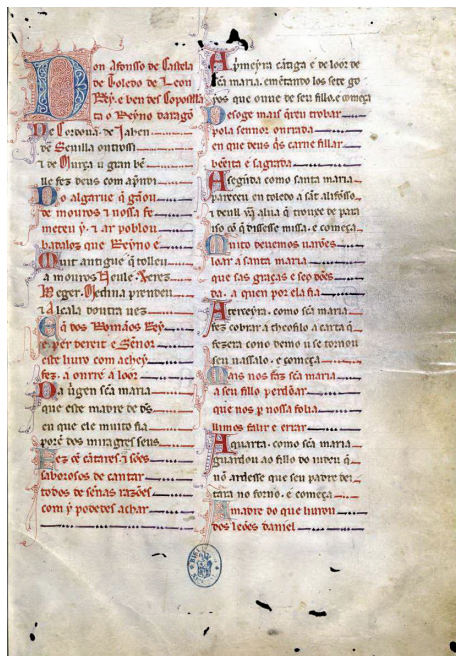 Don Afonsso de Castela
de Toledo de Leon
Rey. e ben des Cõpostela
ta o Reyno daragõ
De Cordoua. de Jahen
de Seuilla outrossi
⁊ de Murça u gran bẽ
lle fez deus com aprẽdi
Do algarue q̃ gãou
de mouros ⁊ nossa fe
meteu y. ⁊ ar poblou
badalloz que Reyno e
Muit antigue q̃ tolleu
a mouros Neule. Xerez
Beger. Medina prendeu
⁊ Alcala doutra uez
E q̃ dos Romãos Rey
e per dereit e Sẽnor
este liuro com achey
fez. a onrre a loor
Da uirgen sc̃a maria
que este madre de ds̃
en que ele muito fia
porẽ dos miragres seus
Fez cẽ cãtares. ⁊ sões
saborosos de cantar
todos de senas razões
com y podedes achar
A p̃meyra cãtiga e de loor de
sc̃a maria. emẽtando los sete go
yos que ouue de seu fillo. e começa
Desoge mais q̃reu trobar
pola sennor onrrada
en que deus q̃s carne fillar
bẽeita e sagrada
A segũda como santa maria
pareceu en toledo a sãt alifonsso
⁊ deull ũa alua q̃ trouxe de para
iso cõ q̃ dissesse missa. e começa
Muito deuemos uarões
loar a santa maria
que sas graças e seg dões
da. a quen por ela fia
A terceyra. como sc̃a maria
fez cobrar a theofilo a carta q̃
fezera cono demo u se tornou
seu uassalo. e começa
Mais nos faz sc̃a maria
a seu fillo perdõar
que nos p nossa folia
llimos falir e errar
A quarta. como sc̃a maria
guardou ao fillo do iudeu q̃
nõ ardesse que seu padre dei
tara no forno. e começa
E madre do que liurou
dos leões daniel